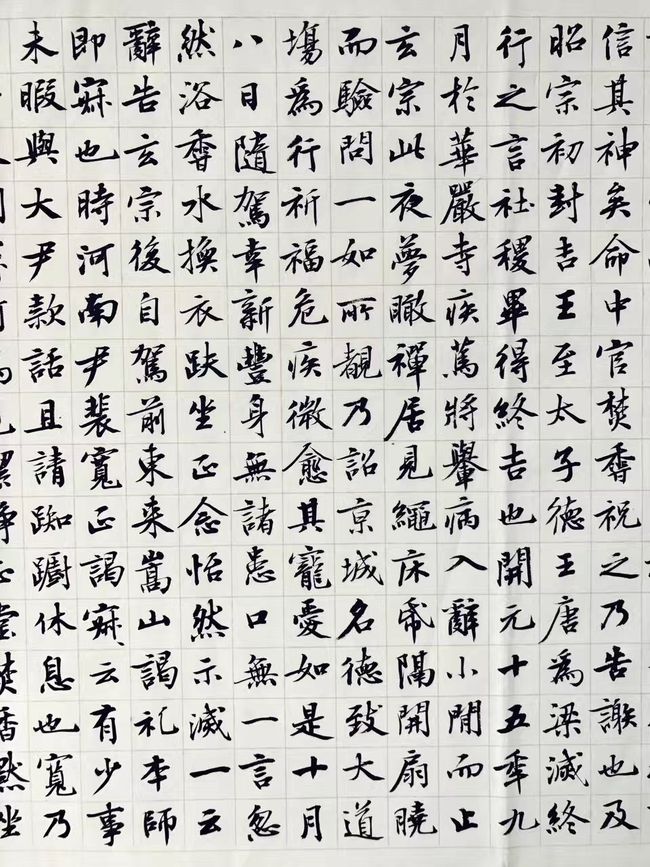 信其神矣命中官焚香祝之乃告謝也及
昭宗初封吉王至太子德王唐為梁滅終
行之言社稷畢得終吉也開元十五年九
月於華嚴寺疾篤將轝病入辭小閒而止
玄宗此夜夢瞰禪居見繩床帋隔開扇曉
而驗問一如所覩乃詔京城名德致大道
塲為行祈福危疾微愈其寵愛如是十月
八日隨駕幸新豐身無諸患口無一言忽
然浴香水換衣趺坐正念怡然示滅一云
辭告玄宗後自駕前東來嵩山謁礼本師
即寂也時河南尹裴寬正謁寂云有少事
未暇與大尹款話且請踟躕休息也寬乃